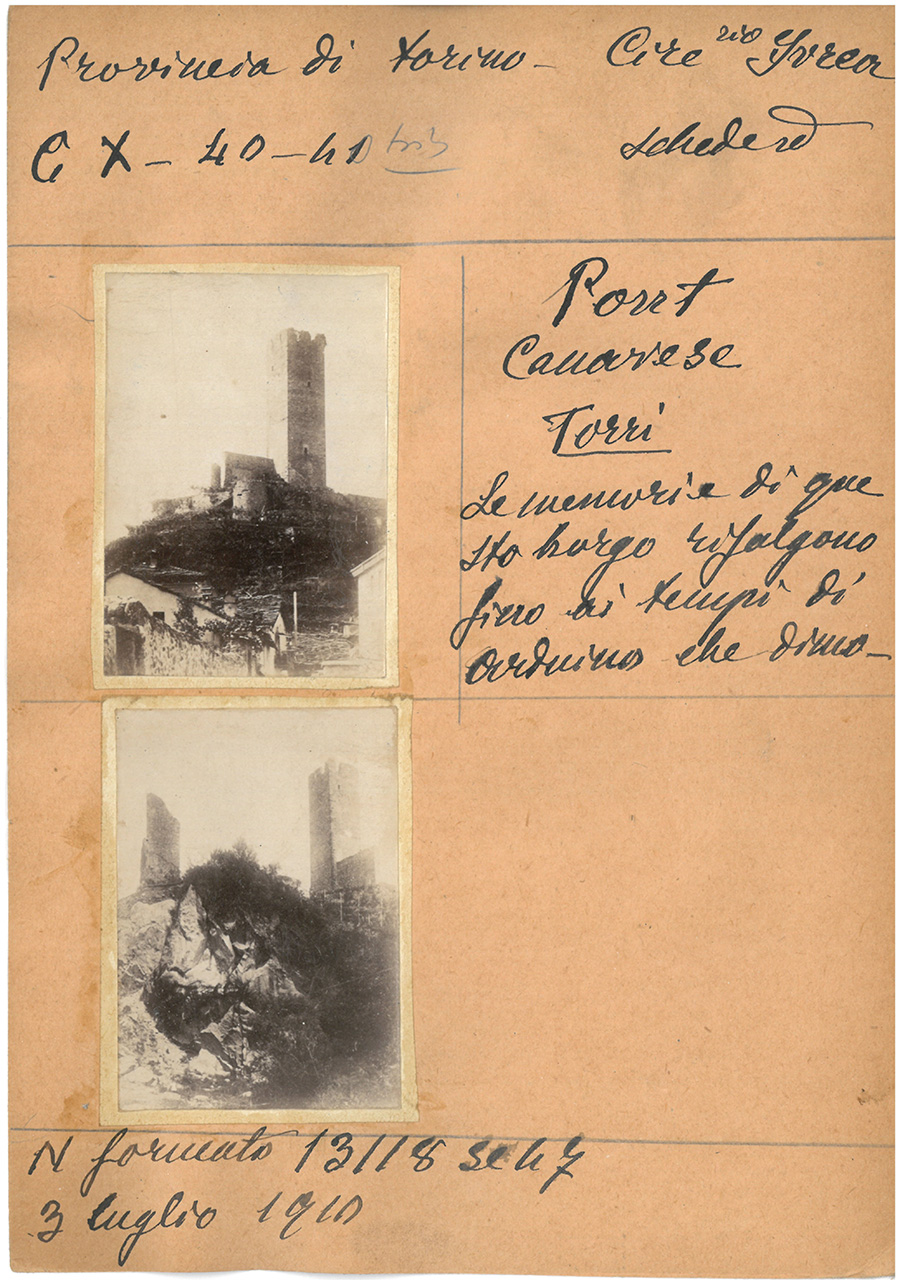 Provincia di Torino - Circ rio Ivrea
C X - 40 - 41 bis
schede
Pont
Canavese
Torri
Le memorie di que
sto borgo risalgono
fino ai tempi di
Arduino che dimo-
N formato 13/18
3 luglio 1910